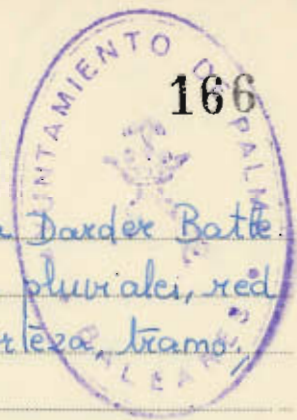 AYUNTAMIENTO DE PALMA
BALEARES
166
Darder Batle
pluviales, red
tramo,